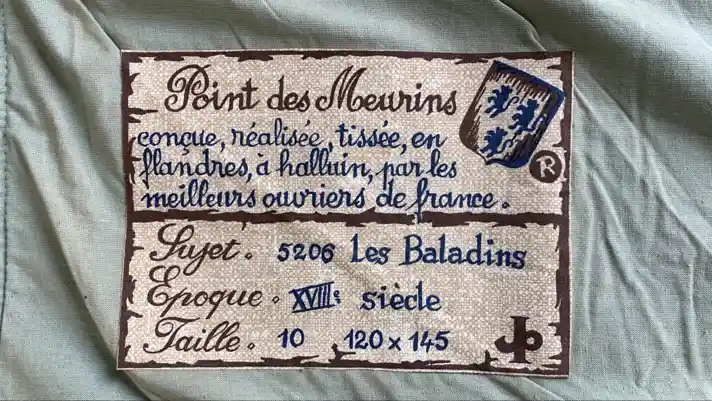 Point des Meurins
conçue, réalisée, tissée, en
flandres, à halluin, par les
meilleurs ouvriers de france.
R
Sujet. 5206 Les Baladins
Époque. XVIIIe siècle
Taille. 10 120 x 145
JP